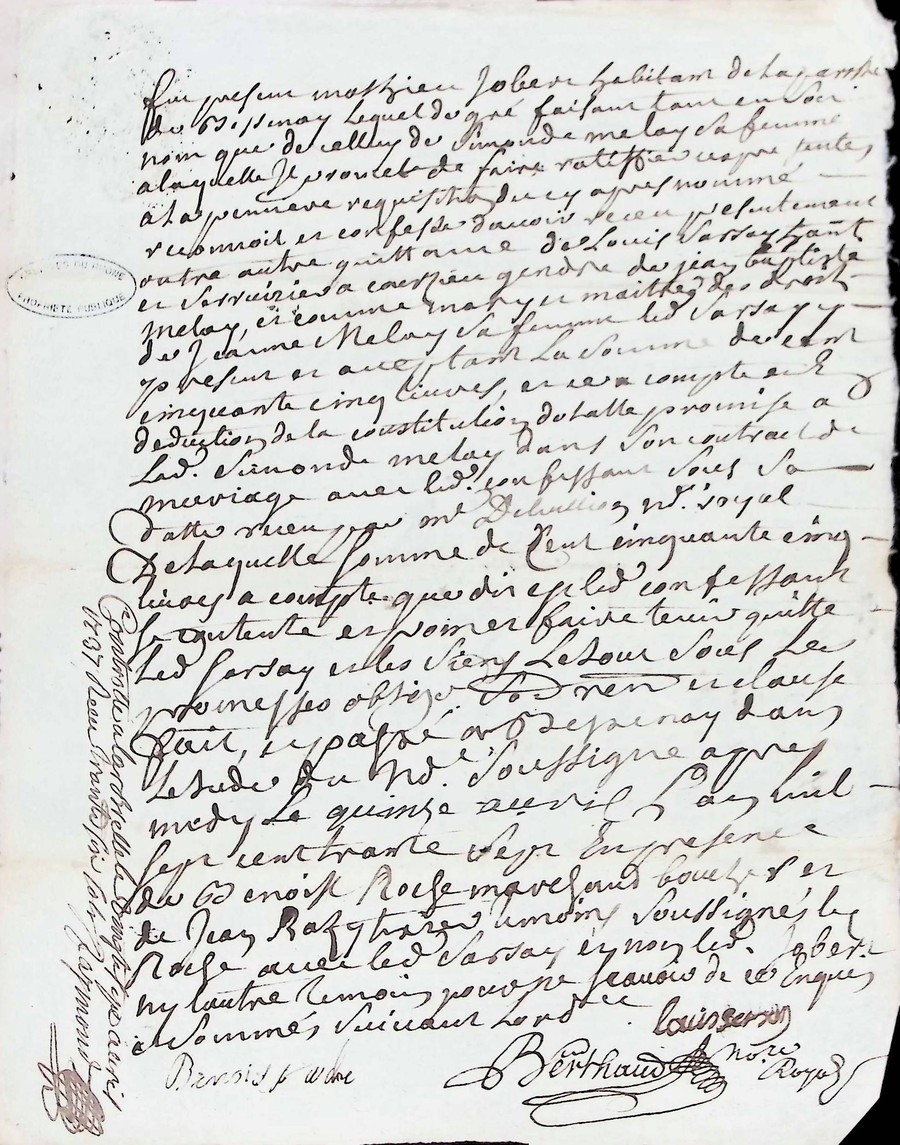 fut present mathieu Jobert habitant de la parroisse
de Bessenay lequel de gré faisant tant en son
nom que de celluy de Simonde melay sa femme
a laquelle Il promet de faire ratiffier ces presentes
a la premiere requisition du cy apres nommé
reconnoit et confesse d'avoir receu presentement
outre autre quittance de Louis Sarsay
et Serrurier a courzieu gendre de jean baptiste
melay, et comme mary et maitre des droits
de Jeanne Melay sa femme led Sarsay y
present et acceptant La somme de cent
cinquante cinq livres, et ce a compte et
deduction de la constitution dotalle promise a
Lad. Simonde melay dans son contract de
mariage avec led. confessant sous sa
datte receu par me nre. royal
De laquelle somme de Cent cinquante cinq
livres a compte que dit est led confessant
se contente et promet faire tenir quitte
Led Sarsay et les siens Le tout sous Les
promesses oblig. ren et clause
fait, et passé a Bessenay dans
L'etude du Nre. soussigné apres
medy Le quinze avril L'an mil
sept cent trante sept En presence
de Benoist Roche marchand boucher et
de Jean temoins soussignés led
Roche avec led Sarsay et non led. Jobert
ny l'autre temoin pour ne scavoir de ce Enquis
et Sommés suivant Lord.ce
louis sersay
Benoist roche
Berthaud nore
Royal
Controllé a larbrelle le vingt sept avril
1737 Receu Raymond
PROPRIETE PUBLIQUE